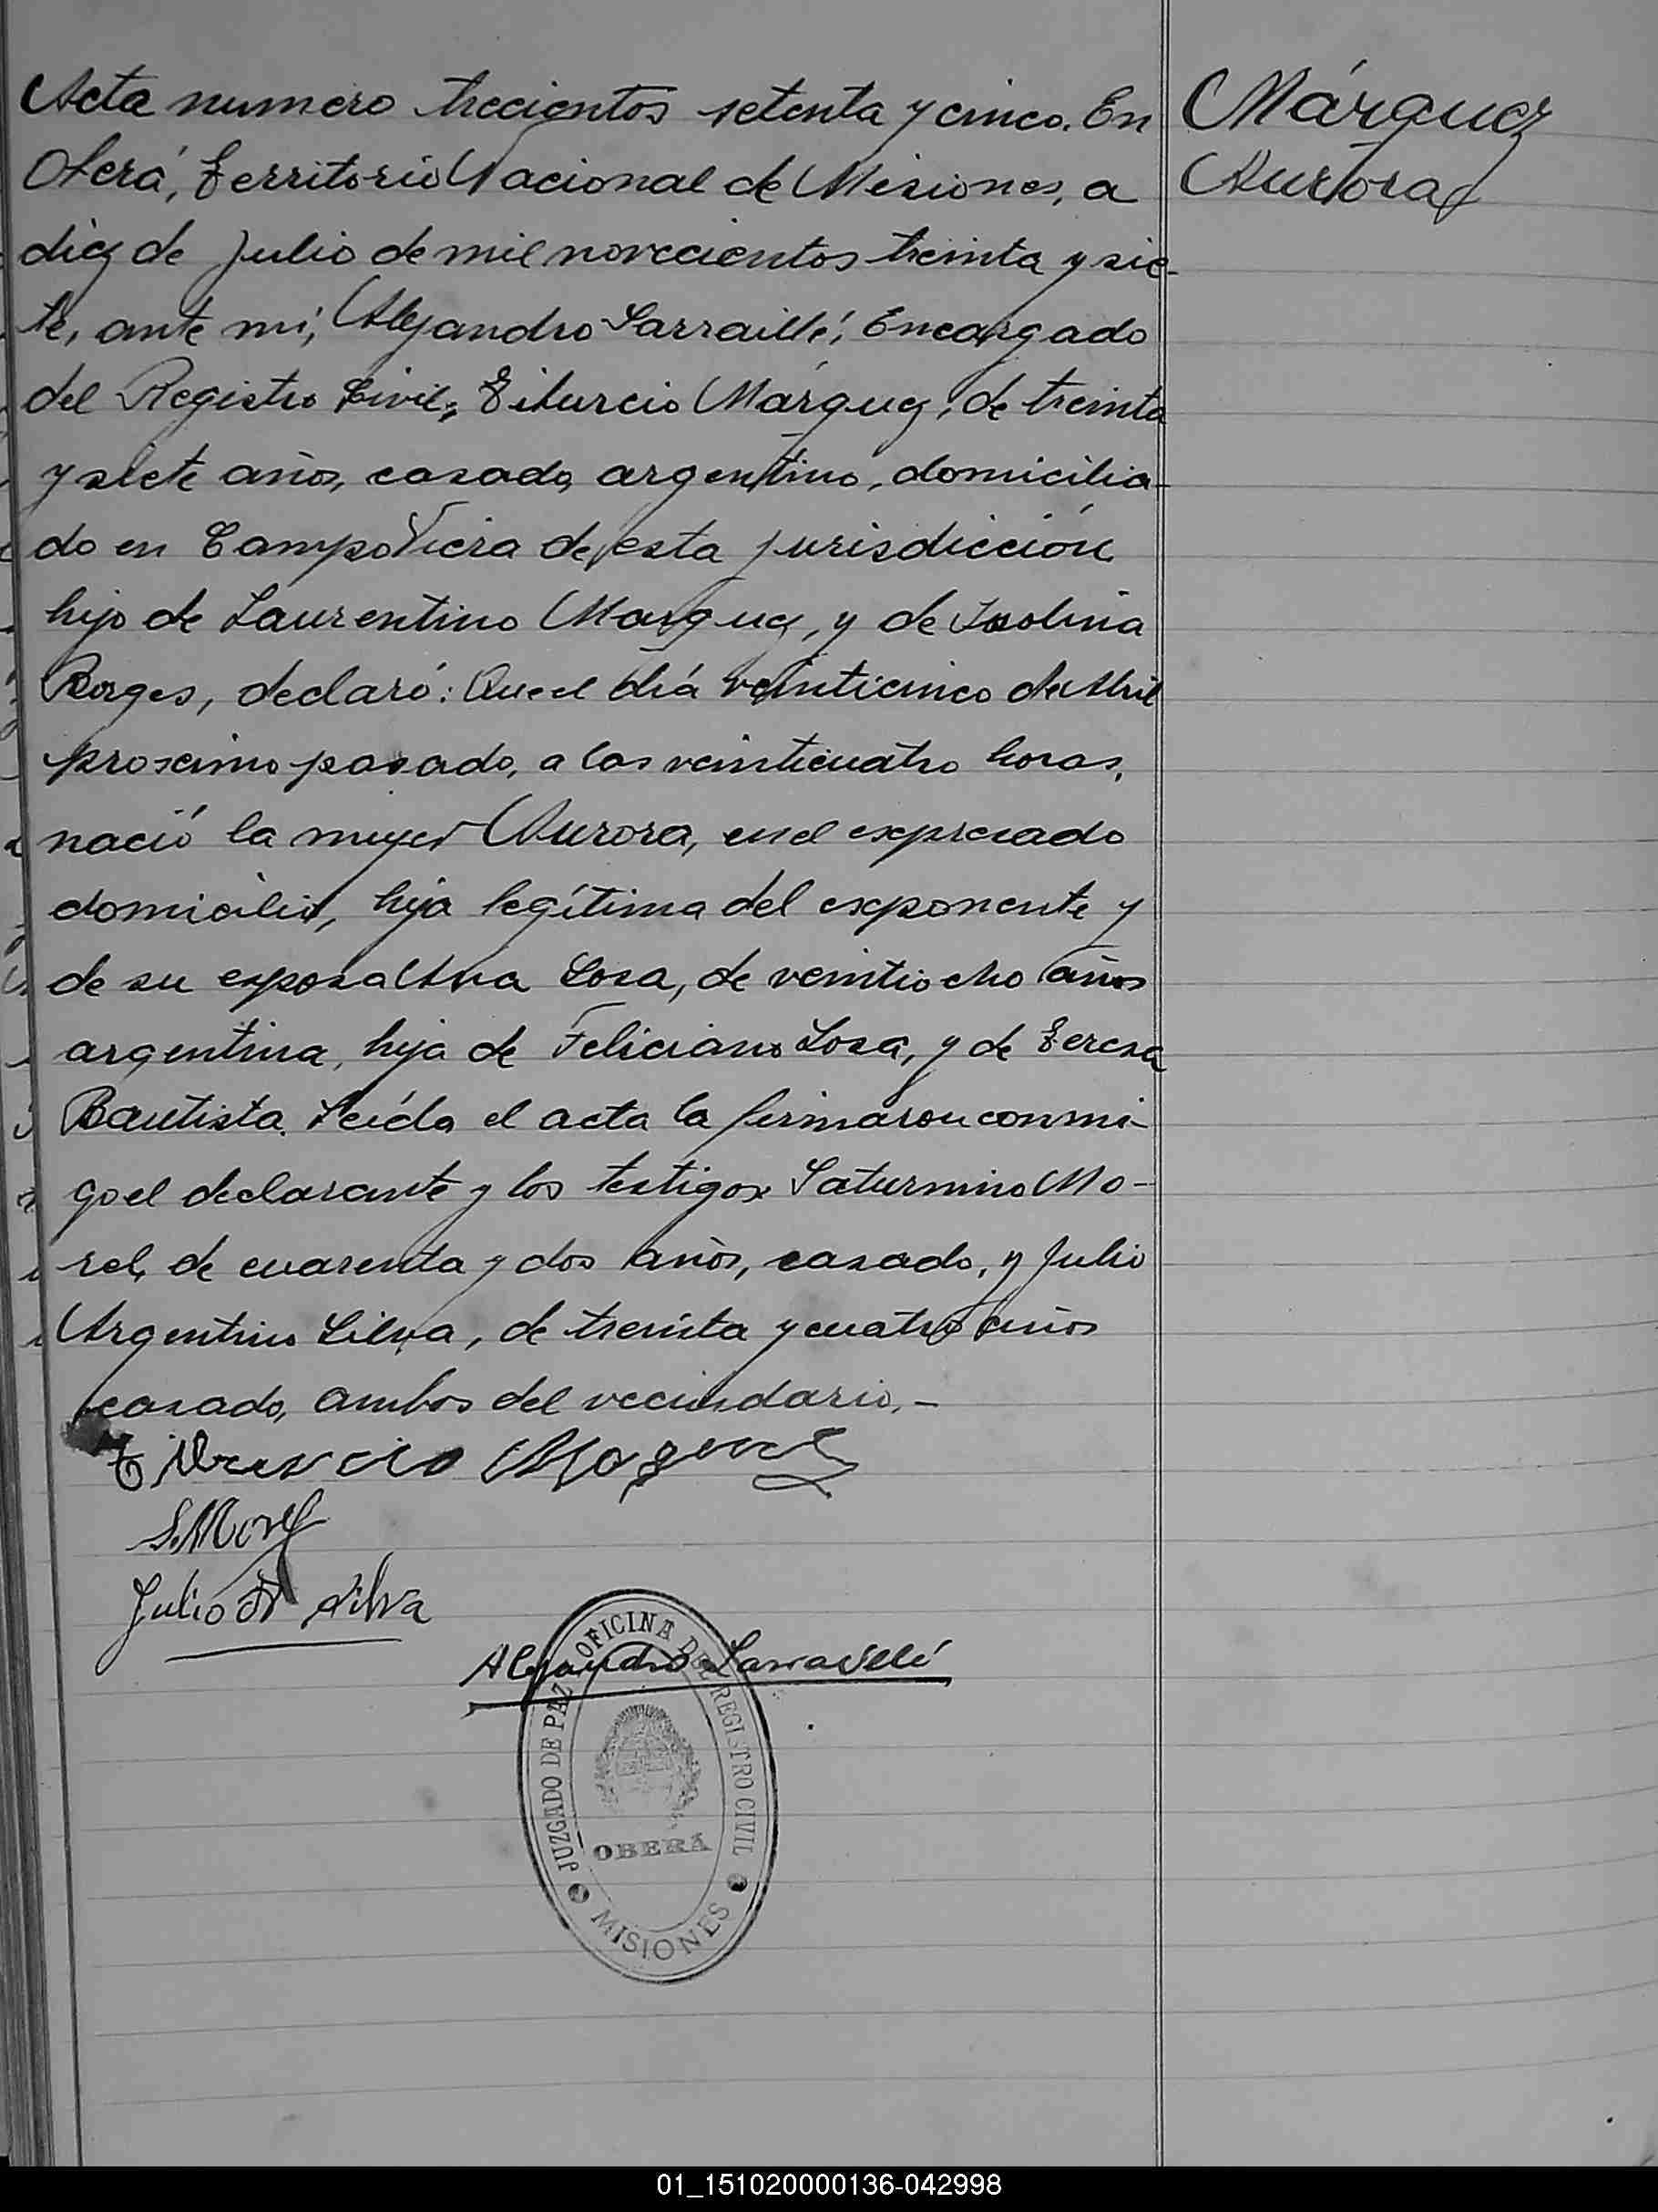 Acta numero trecientos setenta y cinco. En
Oberá, Territorio Nacional de Misiones, a
diez de Julio de mil novecientos treinta y sie-
te, ante mí, Alejandro Larraillé, Encargado
del Registro Civil, Tiburcio Márquez, de treinta
y siete años, casado, argentino, domicilia-
do en Campo Viera de esta jurisdicción
hijo de Laurentino Marquez, y de Isolina
Borges, declaró: Que el día veinticinco de Abril
proximo pasado, a las veinticuatro horas,
nació la mujer Aurora, en el expresado
domicilio, hija legítima del exponente y
de su esposa Ana Sosa, de veintiocho años
argentina, hija de Feliciano Sosa, y de Teresa
Bautista. Leída el acta la firmaron conmi-
go el declarante y los testigos Saturnino Mo-
rel, de cuarenta y dos años, casado, y Julio
Argentino Silva, de treinta y cuatro años
casado, ambos del vecindario.-
Márquez
Aurora
Tiburcio Marquez
S. Morel
Julio A Silva
Alejandro Larraillé
JUZGADO DE PAZ OFICINA DEL REGISTRO CIVIL
OBERA
MISIONES
01_151020000136-042998